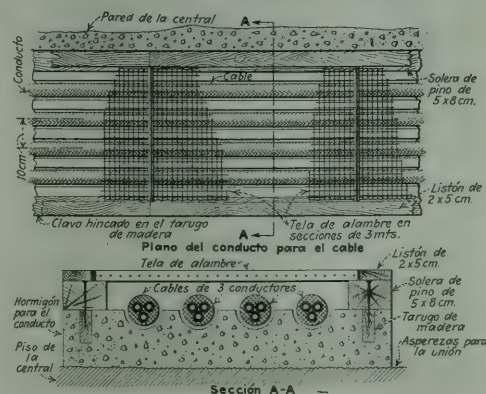 Pared de la central
A
Conducto
Cable
Solera de
pino de
5 x 8 cm.
10cm
Listón de
2 x 5 cm.
Clavo hincado en el tarugo
de madera
A
Tela de alambre en
secciones de 3 mts.
Plano del conducto para el cable
Tela de alambre
Listón de
2 x 5 cm.
Cables de 3 conductores
Solera de
pino de
5 x 8 cm.
Hormigón
para el
conducto
Tarugo de
madera
Piso de
la
central
Asperezas para
la unión
Sección A-A